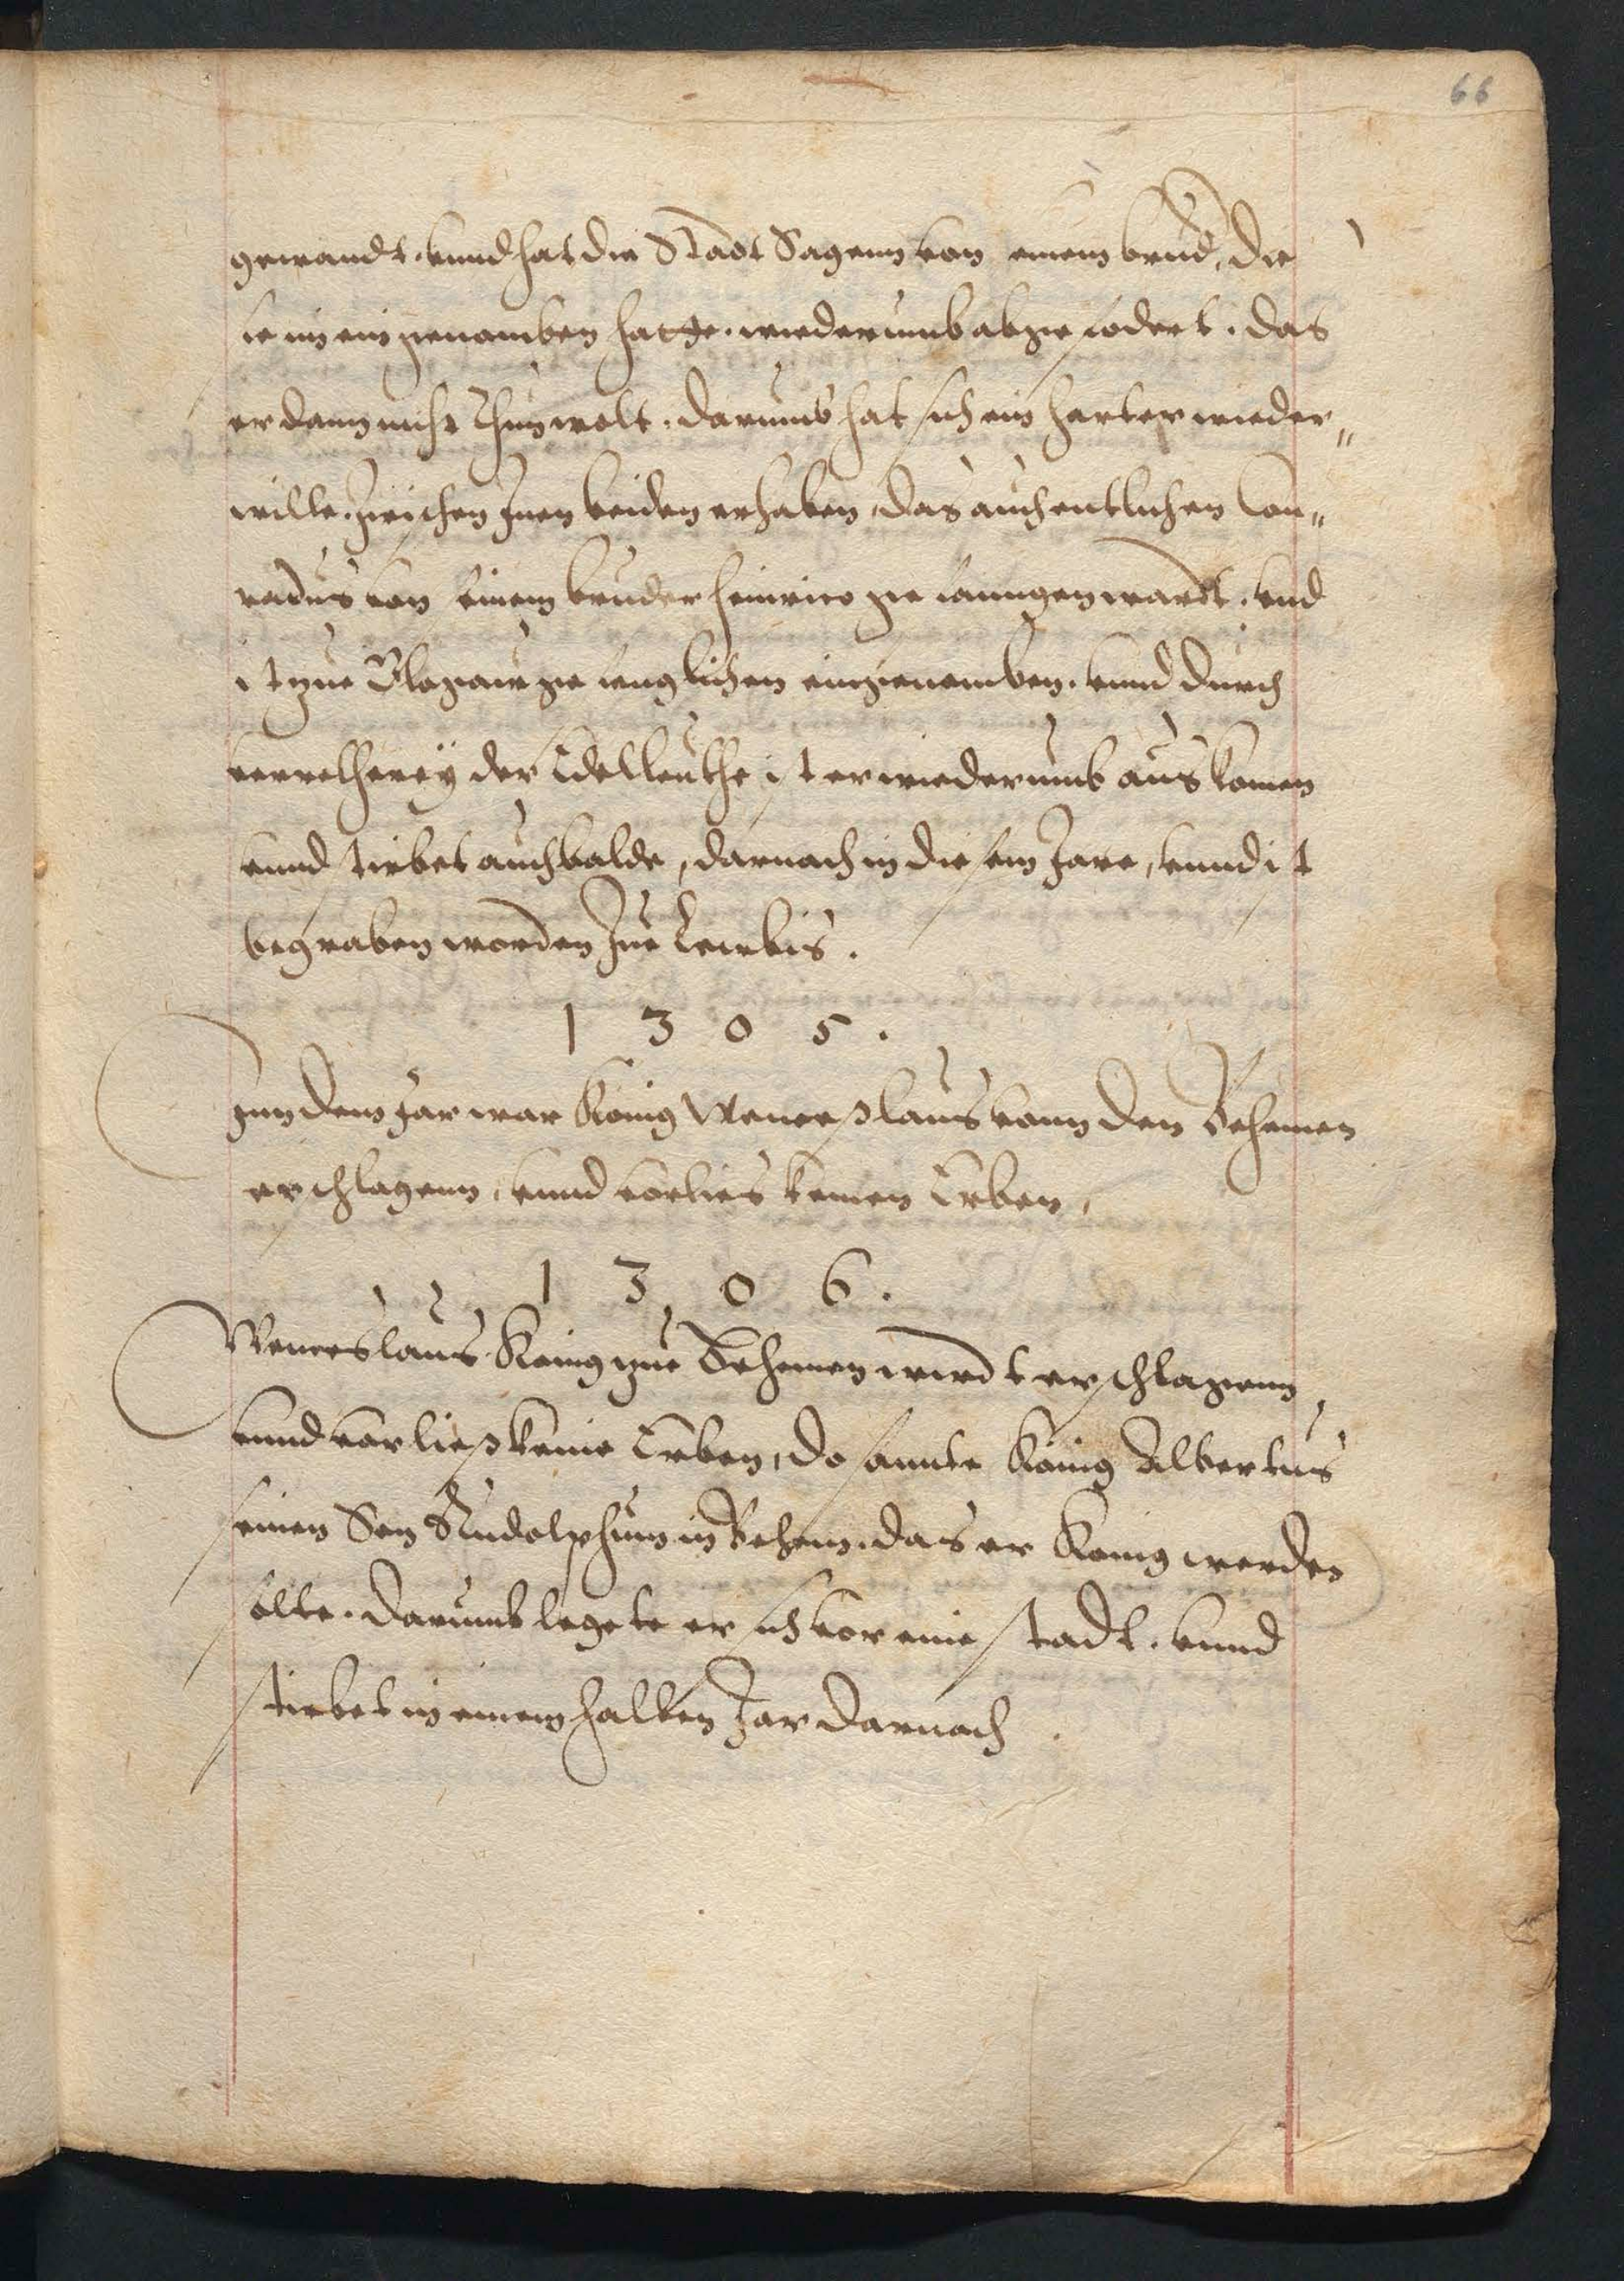 66
gewandt. vnnd hat die Stadt Sagenn von einem brud, die
er im eingenomben hatte. wiederumb abgefodert. das
er dann nicht thun wolt. darumb hat sich ein harter wieder„
wille. zwischen Inen beiden erhaben, das auch entlichen Con„
radus von seinem bruder Heinrico gefanngen wardt. vnd
ist zue Glogaw gefenglichen eingenomben. vnnd durch
verretherey der Edelleuthe ist er wiederumb auskomen
vnnd stirbet auch balde, darnach in diesem Jare, vnnd ist
begraben worden Zue Leubis.
1305.
Inn dem Jar war König Wenceßlaus vonn den Behemen
erschlagenn, vnnd vorlies keinen Erben,
1306.
Wenceslaus König zue Behemen wirdt erschlagenn,
vnnd vorließ keine Erben, do sannte König Albertus
seinen Son Rudolphum in Behem. das er Konig werden
solte. darumb legete er sich vor eine stadt. vnnd
stirbet in einem halben Jar darnach.